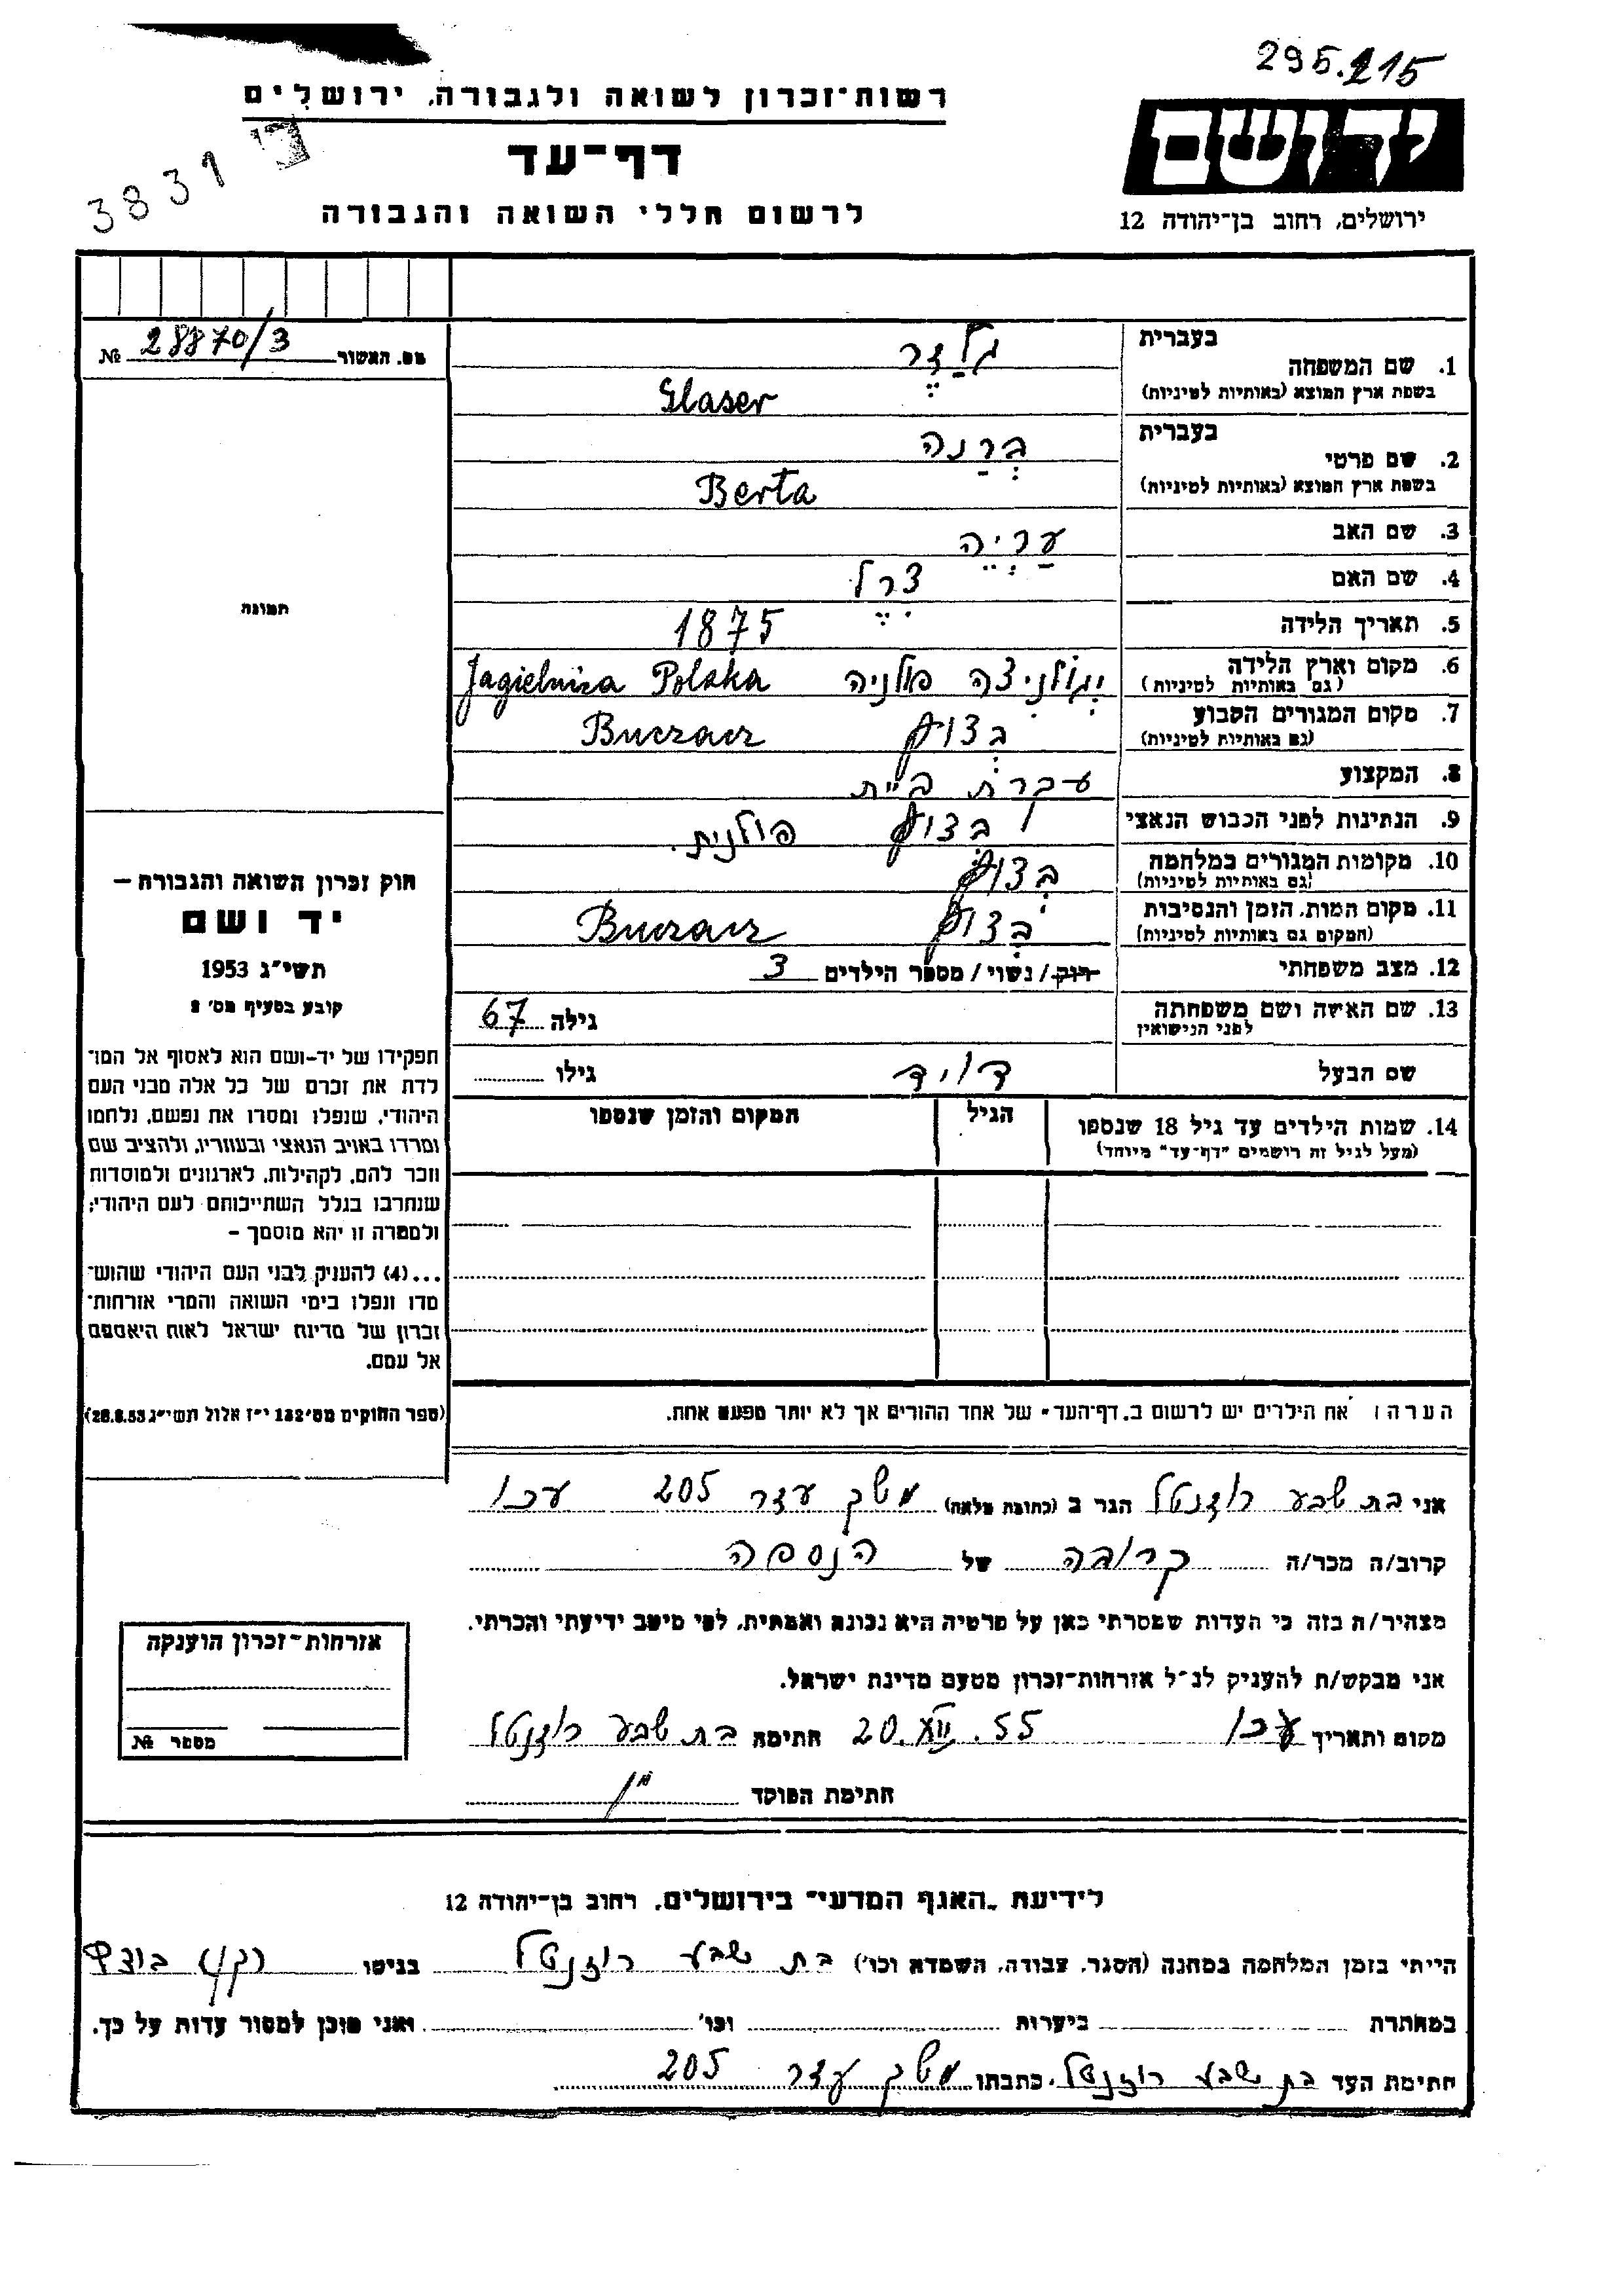 295.215
רשות־זכרון לשואה ולגבורה, ירושלים
דף־עד
לרשום חללי השואה והגבורה
יד ושם
ירושלים, רחוב בן־יהודה 12
3831
מס. האשור 28870/3 №
בעברית
1. שם המשפחה גלַזֶר
בשפת ארץ המוצא (באותיות לטיניות) Glaser
בעברית
2. שם פרטי
בשפת ארץ המוצא (באותיות לטיניות) Berta
3. שם האב
4. שם האם
5. תאריך הלידה 1875
6. מקום וארץ הלידה פולניה Jagielniza Polska
(גם באותיות לטיניות)
7. מקום המגורים הקבוע Buczacz
(גם באותיות לטיניות)
8. המקצוע עקרת בית
9. הנתינות לפני הכבוש הנאצי פולנית.
10. מקומות המגורים במלחמה
(גם באותיות לטיניות)
11. מקום המות, הזמן והנסיבות Buczacz
(המקום גם באותיות לטיניות)
12. מצב משפחתי רווק/ נשוי/ מספר הילדים 3
13. שם האשה ושם משפחתה גילה 67
לפני הנישואין
שם הבעל דויד גילו
14. שמות הילדים עד גיל 18 שנספו הגיל המקום והזמן שנספו
(מעל לגיל זה רושמים "דף־עד" מיוחד)
תמונה
חוק זכרון השואה והגבורה –
יד ושם
תשי״ג 1953
קובע בסעיף מס׳ 2
תפקידו של יד-ושם הוא לאסוף אל המו־
לדת את זכרם של כל אלה מבני העם
היהודי, שנפלו ומסרו את נפשם, נלחמו
ומרדו באויב הנאצי ובעוזריו, ולהציב שם
וזכר להם, לקהילות, לארגונים ולמוסדות
שנחרבו בגלל השתייכותם לעם היהודי;
ולמטרה זו יהא מוסמך –
...(4) להעניק לבני העם היהודי שהוש־
מדו ונפלו בימי השואה והמרי אזרחות־
זכרון של מדינת ישראל לאות היאספם
אל עמם.
(ספר החוקים מס׳132 י״ז אלול תשי״ג 28.8.53)
הערה: את הילדים יש לרשום ב„דף־העד״ של אחד ההורים אך לא יותר מפעם אחת.
אני בת שבע רוזנטל הגר ב (כתובת מלאה) 205 עכו
קרוב/ה מכר/ה קרובה של הנספה
מצהיר/ה בזה כי העדות שמסרתי כאן על פרטיה היא נכונה ואמתית, לפי מיטב ידיעתי והכרתי.
אני מבקש/ת להעניק לנ״ל אזרחות־זכרון מטעם מדינת ישראל.
מקום ותאריך עכו 20.XII.55 חתימה בת שבע רוזנטל
חתימת הפוקד
אזרחות־זכרון הוענקה
מספר №
לידיעת „האגף המדעי״ בירושלים, רחוב בן־יהודה 12
הייתי בזמן המלחמה במחנה (הסגר, עבודה, השמדה וכו׳) בת שבע רוזנטל בגיטו
במחתרת ביערות וכו׳ ואני מוכן למסור עדות על כך.
חתימת העד בת שבע רוזנטל כתבתו 205